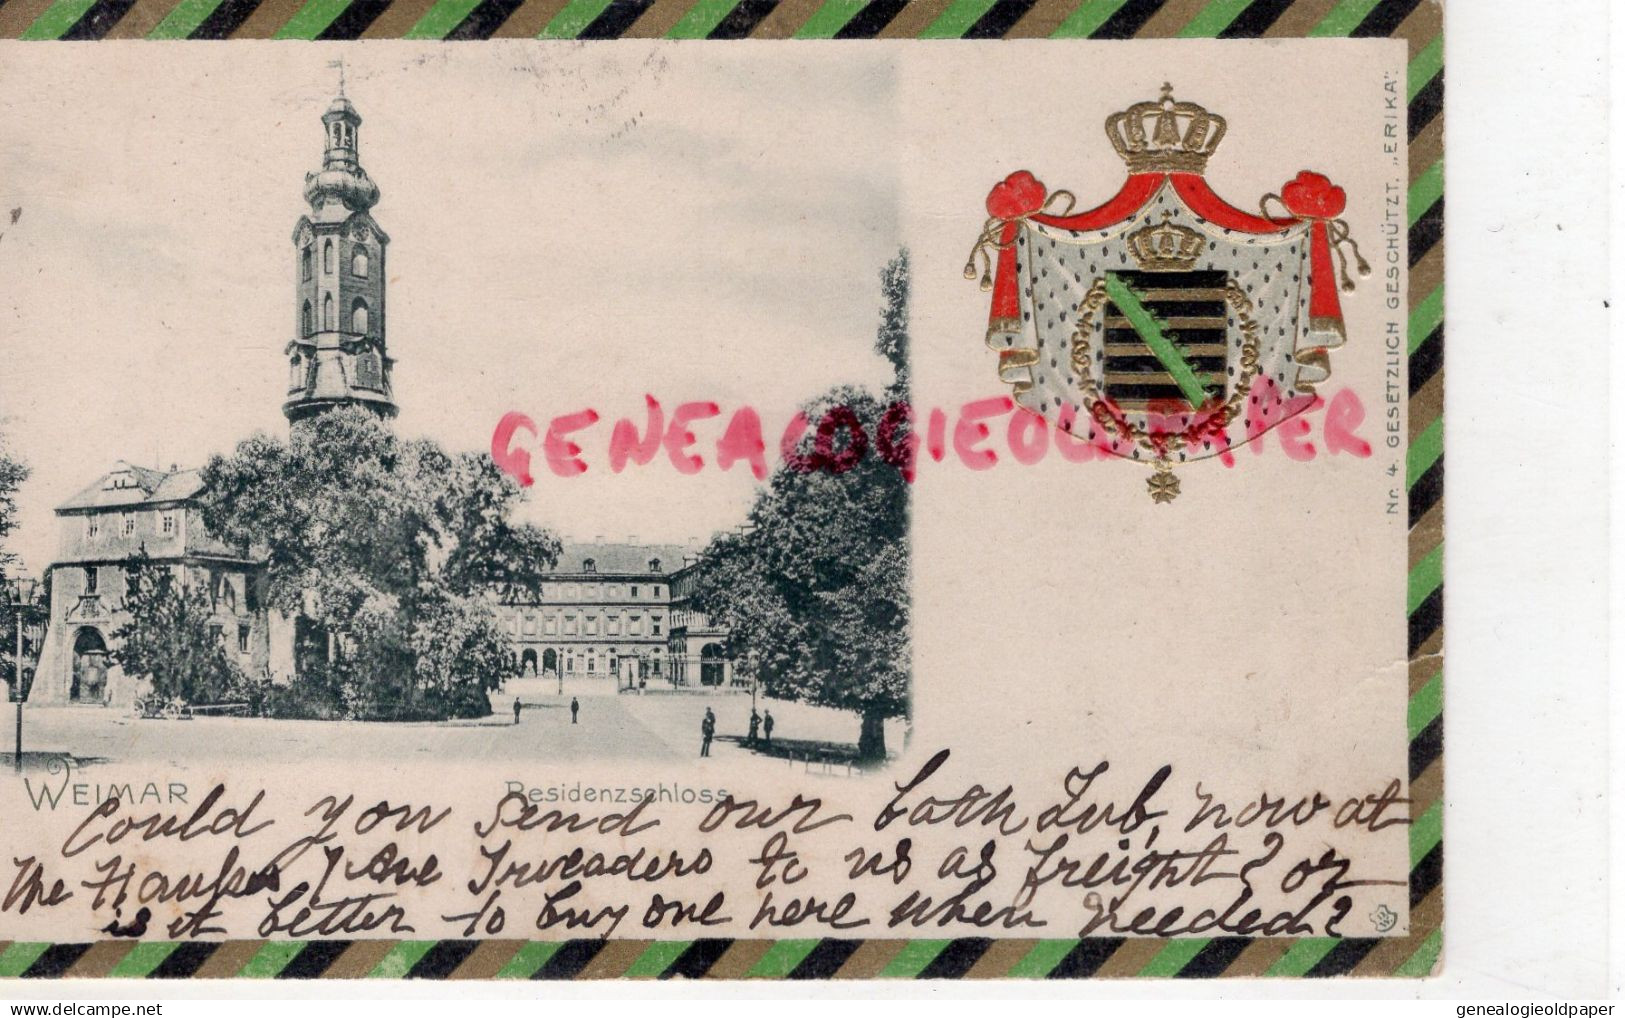 Nr. 4. GESETZLICH GESCHÜTZT. „ERIKA”.
GENEALOGIEOLDPAPER
WEIMAR
Residenzschloss
Could you send our bath Tub, now at
the to us as freight? or
is it better to buy one here when needed?
genealogieoldpaper